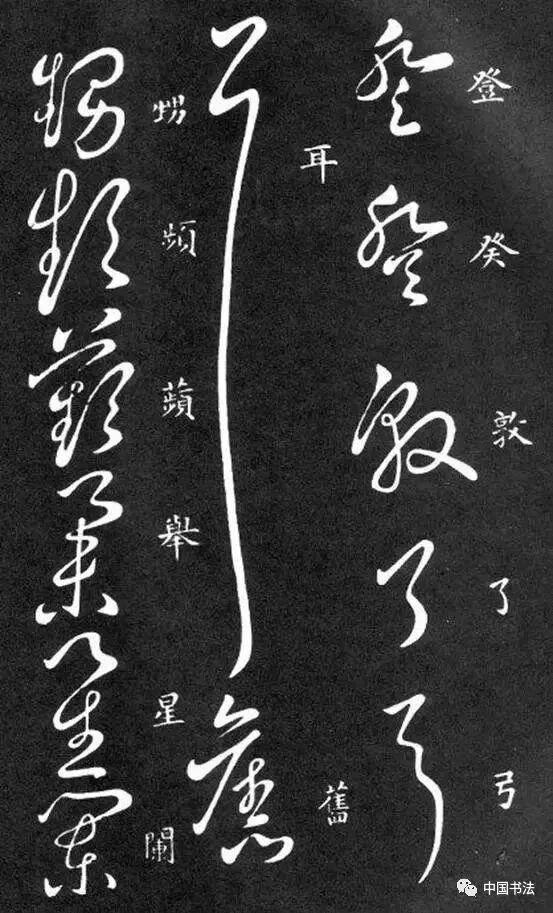 登癸敦了弓
耳舊
甥頻蘋舉星闌
中国书法